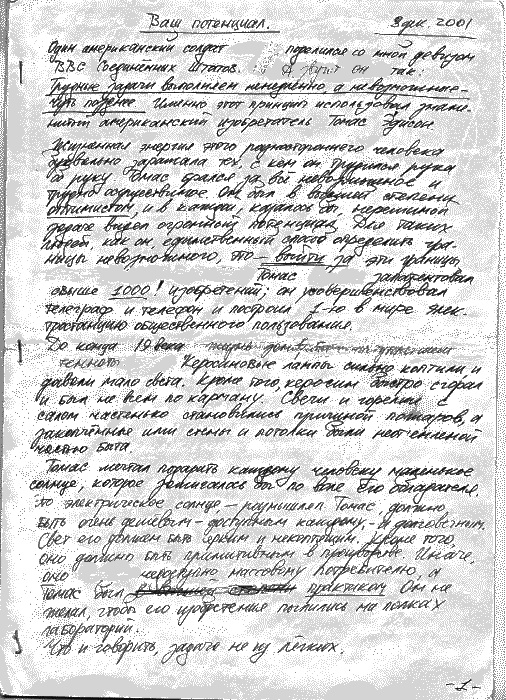 Ваш потенциал. 8 дек. 2001
Один американский солдат поделился со мной девизом
ВВС Соединённых Штатов. А звучит он так:
Трудные задачи выполняем немедленно, а невозможные –
чуть позднее. Именно этот принцип использовал знаме-
нитый американский изобретатель Томас Эдисон.
Жизненная энергия этого разностороннего человека
буквально заражала тех, с кем он трудился рука
об руку. Томас брался за всё невозможное и
трудно осуществимое. Он был в высшей степени
оптимистом, и в каждом, казалось бы, нерешимой
видел огромный потенциал. Для таких
людей, как он, единственный способ определить гра-
ницы невозможного, это – выйти за эти границы.
Томас запатентовал
свыше 1000! изобретений; он усовершенствовал
телеграф и телефон и построил 1-ю в мире элек-
тростанцию общественного пользования.
До конца 19 века
темното Керосиновые лампы сильно коптили и
давали мало света. Кроме того, керосин быстро сгорал
и был не всем по карману. Свечи и горелки с
салом частенько становились причиной пожаров, а
закопчённые ими стены и потолки были неотъемлемой
частью быта.
Томас мечтал подарить каждому человеку маленькое
солнце, которое зажигалось бы по воле его обладателя
это электрическое солнце, – размышлял Томас, должно
быть очень дешёвым – доступным каждому, – и долговечным.
Свет его должен быть ярким и некоптящим. Кроме того,
оно должно быть примитивным в производстве. Иначе,
оно массовому потребителю, а
Томас был практиком. Он не
желал, чтобы его изобретения пылились на полках
лабораторий.
Что и говорить, задача не из лёгких.
– 1 –